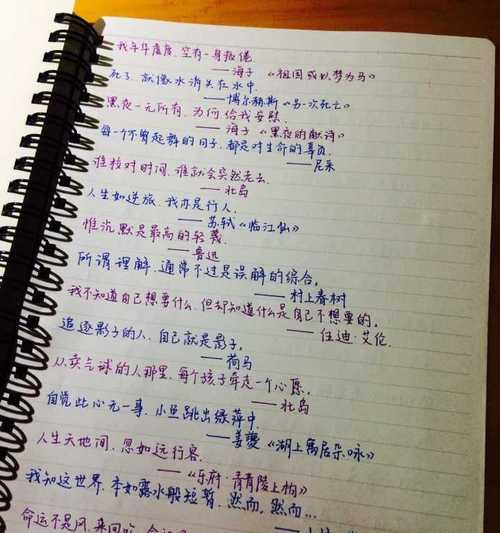 我年年虚度,空有一身疲倦.
——海子《祖国或以梦为马》
死了,就像水消失在水中.
——博尔赫斯《另一次死亡》
黑夜一无所有,为何给我安慰.
——海子《黑夜的献诗》
每一个不曾起舞的日子,都是对生命的辜负.
——尼采
谁校对时间,谁就会突然老去.
——北岛
人生如逆旅,我亦是行人.
——苏轼《临江仙》
惟沉默是最高的轻蔑.
——鲁迅
所谓理解,通常不过是误解的综合.
——村上春树
我不知道自己想要什么,但却知道什么是自己不想要的.
——伍迪·艾伦
追逐影子的人,自己就是影子.
——荷马
从卖气球的人那里,每个孩子牵走一个心愿.
——北岛
自觉此心无一事,小鱼跳出绿萍中.
——姜夔《湖上寓居杂咏》
人生天地间,忽如远行客.
——《乐府·青青陵上柏》
我知这世界,本如露水般短暂,然而,然而...
命运不是风,来回吹,命